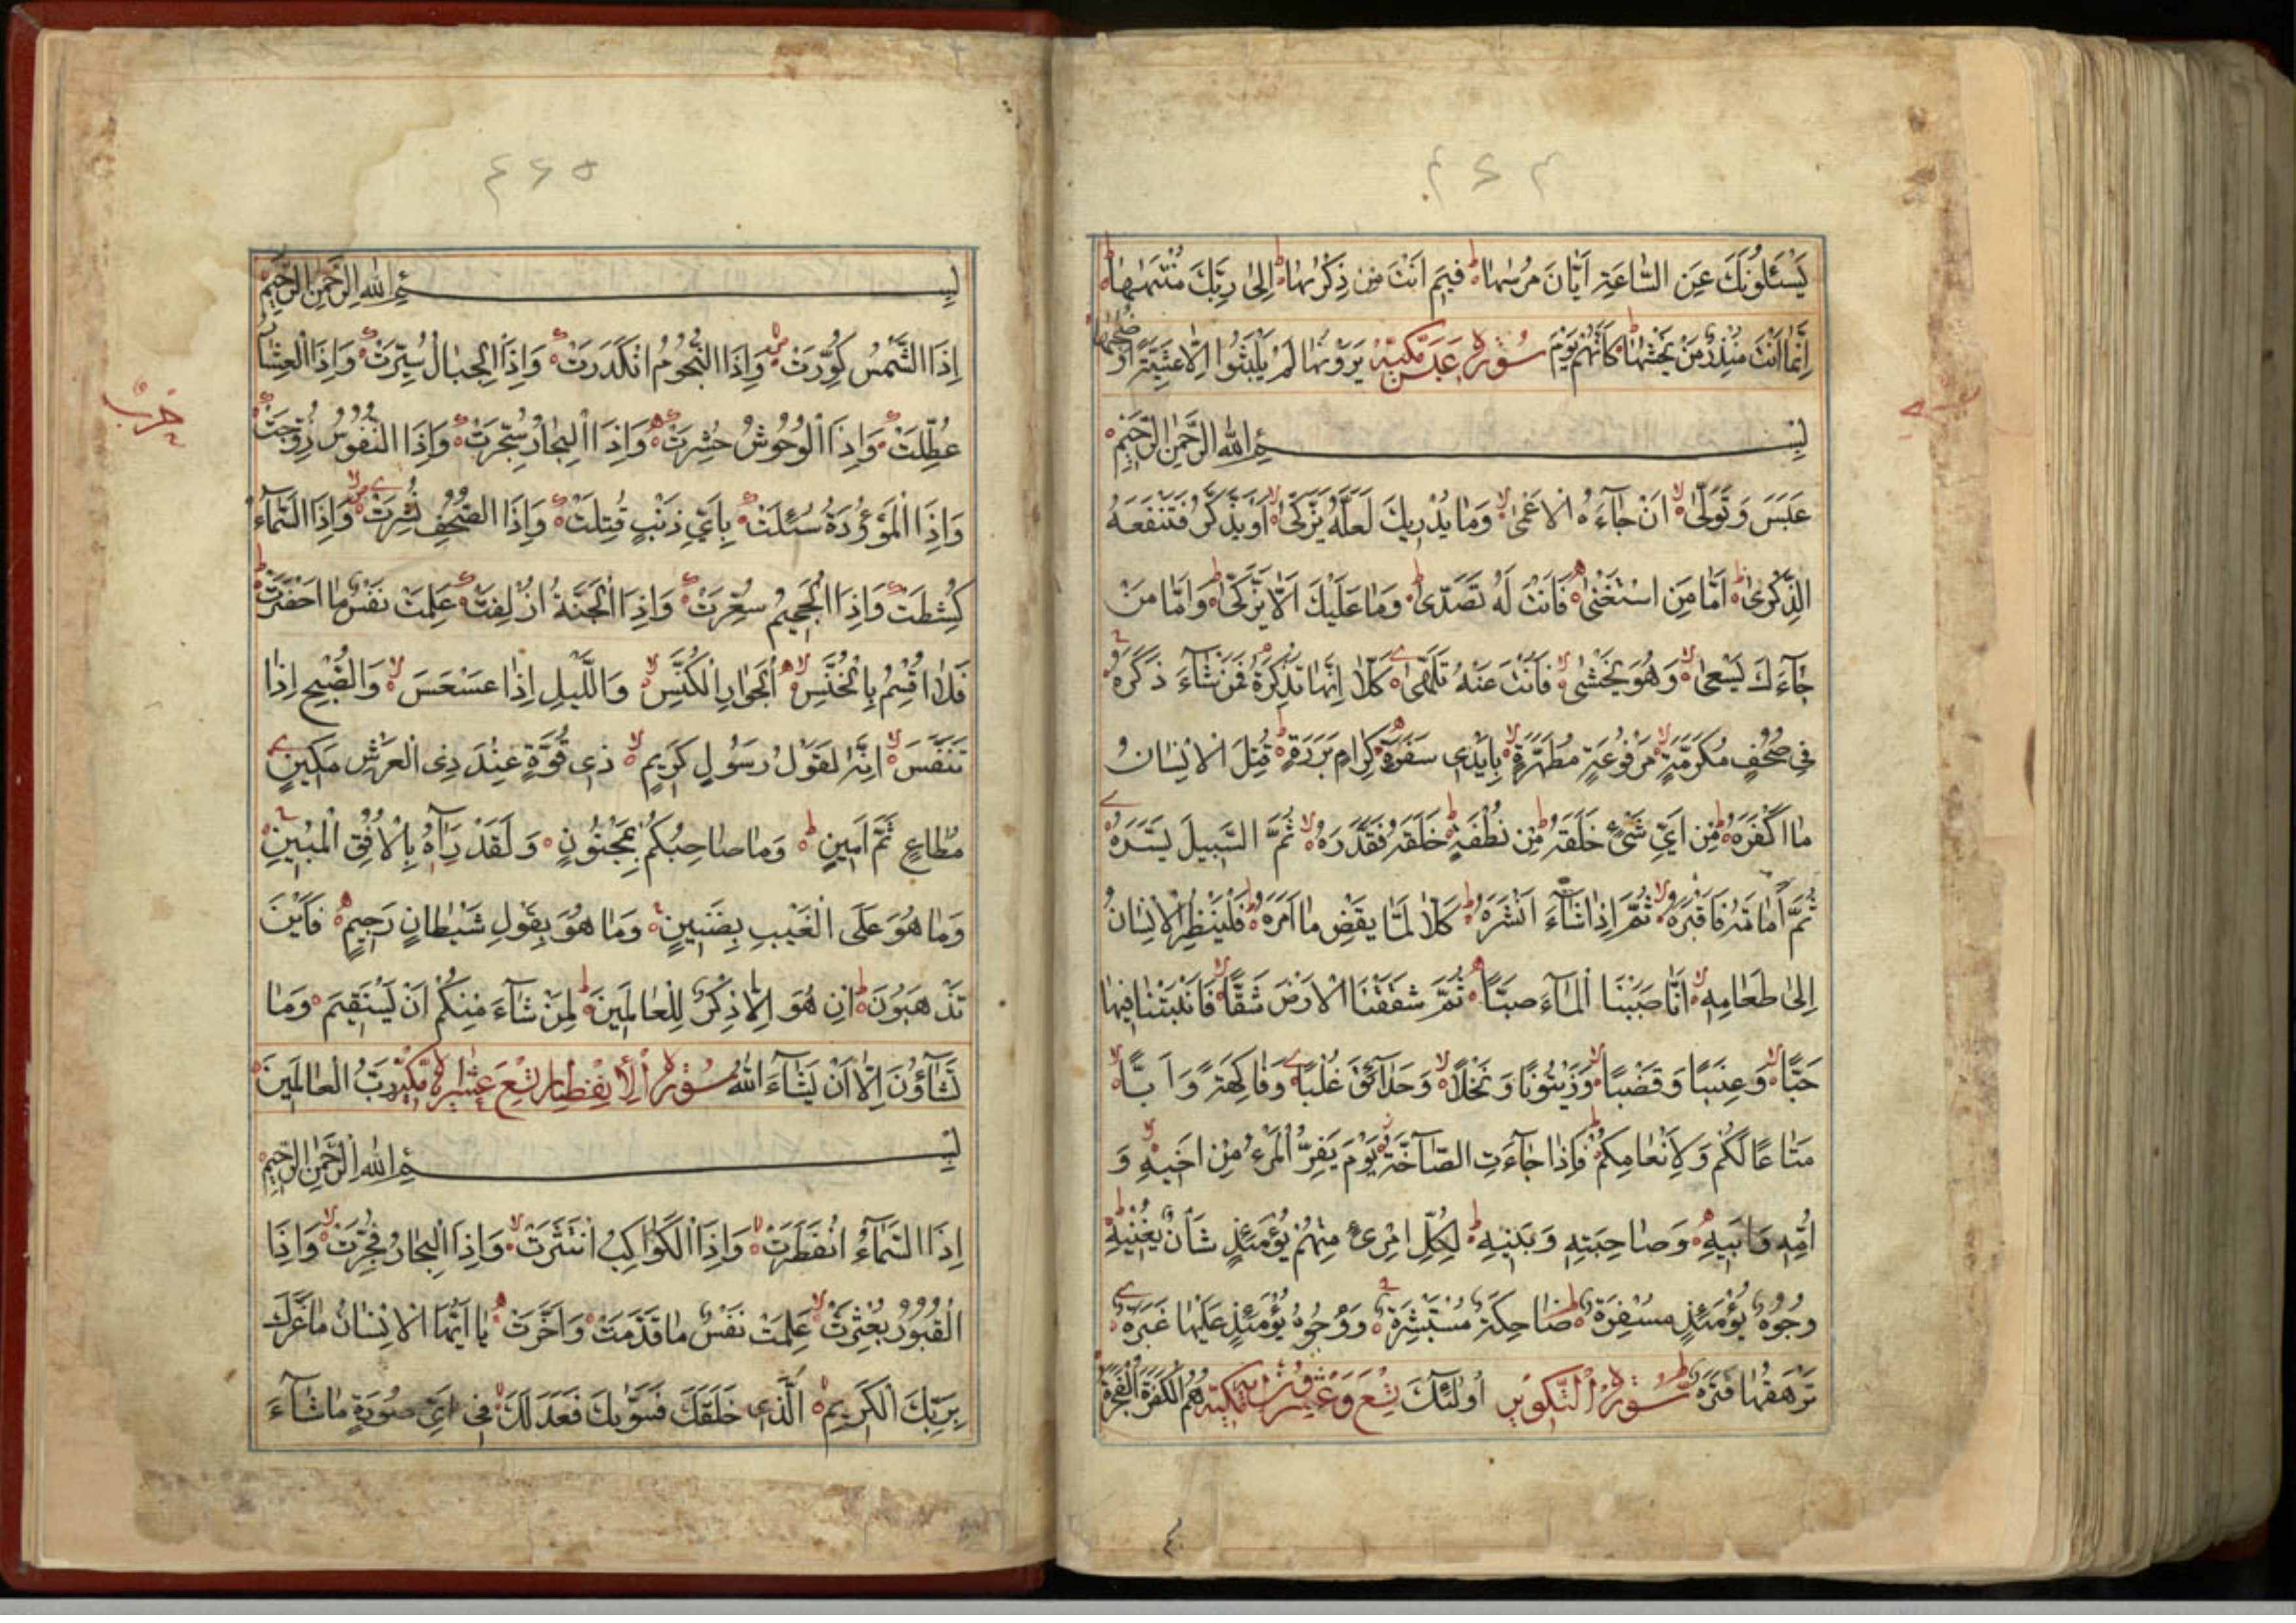 ٤٦٤
يَسْئَلُونَكَ عَنِ السَّاعَةِ اَيَّانَ مُرْسٰيهَا فِيمَ اَنْتَ مِنْ ذِكْرٰيهَا اِلٰى رَبِّكَ مُنْتَهٰيهَا
اِنَّمَا اَنْتَ مُنْذِرُ مَنْ يَخْشٰيهَا كَاَنَّهُمْ يَوْمَ سُورَة عَبَسَ مَكِّيَّة يَرَوْنَهَا لَمْ يَلْبَثُوا اِلَّا عَشِيَّةً اَوْ ضُحٰيهَا
بِسْمِ اللّٰهِ الرَّحْمٰنِ الرَّحِيمِ
عَبَسَ وَتَوَلّٰى اَنْ جَآءَهُ الْاَعْمٰى وَمَا يُدْرِيكَ لَعَلَّهُ يَزَّكّٰى اَوْ يَذَّكَّرُ فَتَنْفَعَهُ
الذِّكْرٰى اَمَّا مَنِ اسْتَغْنٰى فَاَنْتَ لَهُ تَصَدّٰى وَمَا عَلَيْكَ اَلَّا يَزَّكّٰى وَاَمَّا مَنْ
جَآءَكَ يَسْعٰى وَهُوَ يَخْشٰى فَاَنْتَ عَنْهُ تَلَهّٰى كَلَّا اِنَّهَا تَذْكِرَةٌ فَمَنْ شَآءَ ذَكَرَهُ
فِي صُحُفٍ مُكَرَّمَةٍ مَرْفُوعَةٍ مُطَهَّرَةٍ بِاَيْدِي سَفَرَةٍ كِرَامٍ بَرَرَةٍ قُتِلَ الْاِنْسَانُ
مَا اَكْفَرَهُ مِنْ اَيِّ شَيْءٍ خَلَقَهُ مِنْ نُطْفَةٍ خَلَقَهُ فَقَدَّرَهُ ثُمَّ السَّبِيلَ يَسَّرَهُ
ثُمَّ اَمَاتَهُ فَاَقْبَرَهُ ثُمَّ اِذَا شَآءَ اَنْشَرَهُ كَلَّا لَمَّا يَقْضِ مَا اَمَرَهُ فَلْيَنْظُرِ الْاِنْسَانُ
اِلٰى طَعَامِهِ اَنَّا صَبَبْنَا الْمَآءَ صَبًّا ثُمَّ شَقَقْنَا الْاَرْضَ شَقًّا فَاَنْبَتْنَا فِيهَا
حَبًّا وَعِنَبًا وَقَضْبًا وَزَيْتُونًا وَنَخْلًا وَحَدَآئِقَ غُلْبًا وَفَاكِهَةً وَاَبًّا
مَتَاعًا لَكُمْ وَلِاَنْعَامِكُمْ فَاِذَا جَآءَتِ الصَّآخَّةُ يَوْمَ يَفِرُّ الْمَرْءُ مِنْ اَخِيهِ وَ
اُمِّهِ وَاَبِيهِ وَصَاحِبَتِهِ وَبَنِيهِ لِكُلِّ امْرِئٍ مِنْهُمْ يَوْمَئِذٍ شَاْنٌ يُغْنِيهِ
وُجُوهٌ يَوْمَئِذٍ مُسْفِرَةٌ ضَاحِكَةٌ مُسْتَبْشِرَةٌ وَوُجُوهٌ يَوْمَئِذٍ عَلَيْهَا غَبَرَةٌ
تَرْهَقُهَا قَتَرَةٌ سُورَة التَّكْوِيرِ اُولٰئِكَ تِسْعَ وَعِشْرُونَ مَكِّيَّة هُمُ الْكَفَرَةُ الْفَجَرَةُ
٤٦٥
بِسْمِ اللّٰهِ الرَّحْمٰنِ الرَّحِيمِ
اِذَا الشَّمْسُ كُوِّرَتْ وَاِذَا النُّجُومُ انْكَدَرَتْ وَاِذَا الْجِبَالُ سُيِّرَتْ وَاِذَا الْعِشَارُ
عُطِّلَتْ وَاِذَا الْوُحُوشُ حُشِرَتْ وَاِذَا الْبِحَارُ سُجِّرَتْ وَاِذَا النُّفُوسُ زُوِّجَتْ
حزب
وَاِذَا الْمَوْؤُدَةُ سُئِلَتْ بِاَيِّ ذَنْبٍ قُتِلَتْ وَاِذَا الصُّحُفُ نُشِرَتْ وَاِذَا السَّمَآءُ
كُشِطَتْ وَاِذَا الْجَحِيمُ سُعِّرَتْ وَاِذَا الْجَنَّةُ اُزْلِفَتْ عَلِمَتْ نَفْسٌ مَا اَحْضَرَتْ
فَلَا اُقْسِمُ بِالْخُنَّسِ الْجَوَارِ الْكُنَّسِ وَاللَّيْلِ اِذَا عَسْعَسَ وَالصُّبْحِ اِذَا
تَنَفَّسَ اِنَّهُ لَقَوْلُ رَسُولٍ كَرِيمٍ ذِي قُوَّةٍ عِنْدَ ذِي الْعَرْشِ مَكِينٍ
مُطَاعٍ ثَمَّ اَمِينٍ وَمَا صَاحِبُكُمْ بِمَجْنُونٍ وَلَقَدْ رَاٰهُ بِالْاُفُقِ الْمُبِينِ
وَمَا هُوَ عَلَى الْغَيْبِ بِضَنِينٍ وَمَا هُوَ بِقَوْلِ شَيْطَانٍ رَجِيمٍ فَاَيْنَ
تَذْهَبُونَ اِنْ هُوَ اِلَّا ذِكْرٌ لِلْعَالَمِينَ لِمَنْ شَآءَ مِنْكُمْ اَنْ يَسْتَقِيمَ وَمَا
تَشَآؤُنَ اِلَّا اَنْ يَشَآءَ اللّٰهُ سُورَة الْاِنْفِطَارِ تِسْعَ عَشْرَة مَكِّيَّة رَبُّ الْعَالَمِينَ
بِسْمِ اللّٰهِ الرَّحْمٰنِ الرَّحِيمِ
اِذَا السَّمَآءُ انْفَطَرَتْ وَاِذَا الْكَوَاكِبُ انْتَثَرَتْ وَاِذَا الْبِحَارُ فُجِّرَتْ وَاِذَا
الْقُبُورُ بُعْثِرَتْ عَلِمَتْ نَفْسٌ مَا قَدَّمَتْ وَاَخَّرَتْ يَا اَيُّهَا الْاِنْسَانُ مَا غَرَّكَ
بِرَبِّكَ الْكَرِيمِ الَّذِي خَلَقَكَ فَسَوّٰيكَ فَعَدَلَكَ فِي اَيِّ صُورَةٍ مَا شَآءَ